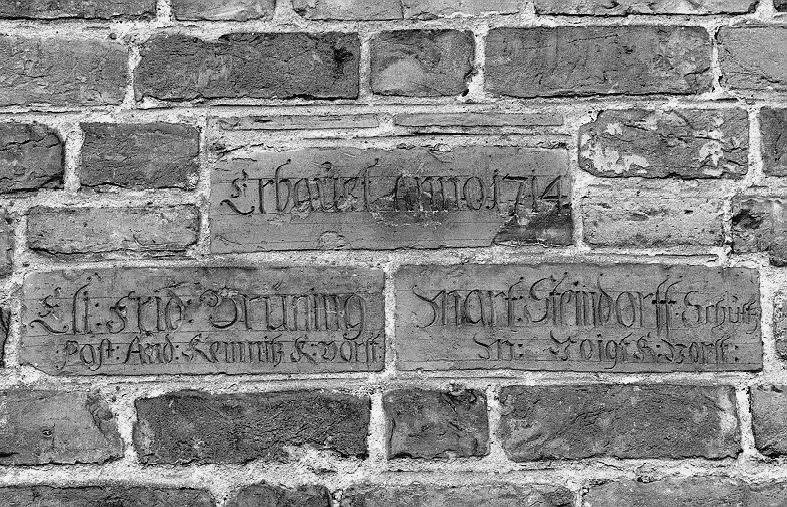 Erbauet Anno 1714
Eli: Frid: Brüning
Past: And: Kemnitz K: Vorst:
Mart: Steindorff Schütz
In: Voigt K: Vorst: